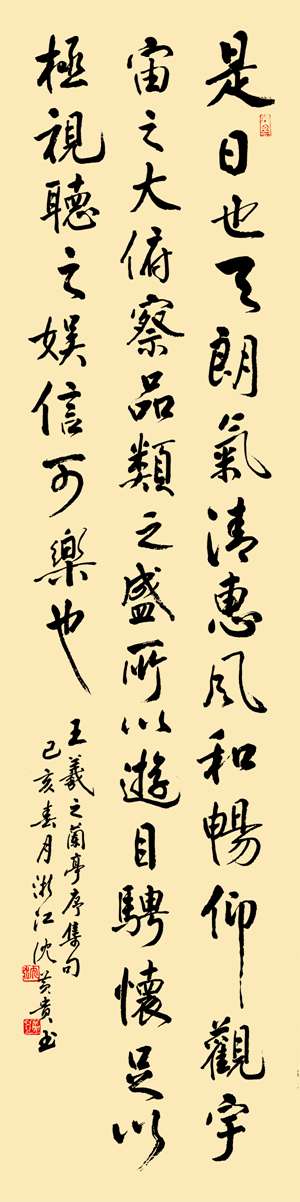 是日也天朗氣清惠風和暢仰觀宇
宙之大俯察品類之盛所以遊目騁懷足以
極視聽之娱信可樂也
王羲之蘭亭序集句
己亥春月浙江沈黃貴书